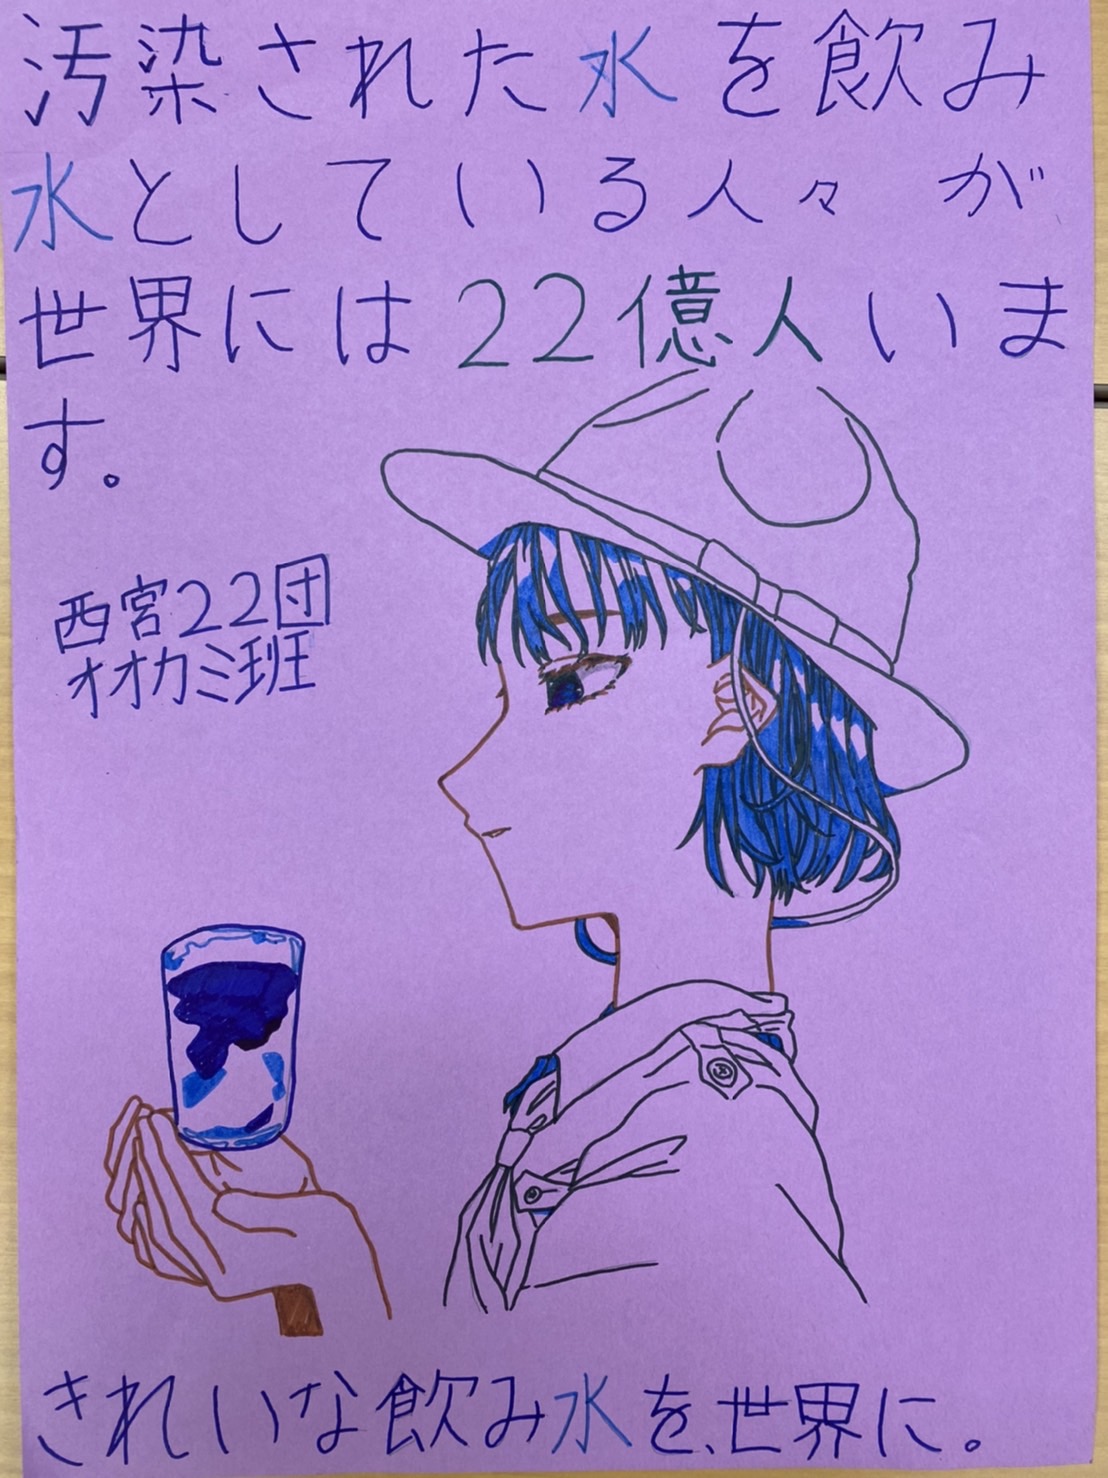 汚染された水を飲み
水としている人々が
世界には22億人いま
す。
西宮22団
オオカミ班
きれいな飲み水を、世界に。